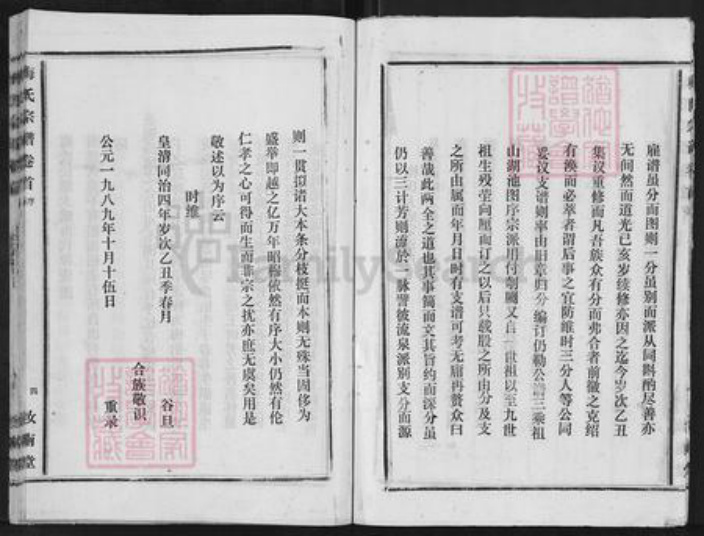 雇谱虽分而图则一分虽别而派从同斟酌尽善亦
无间然而道光己亥岁续修亦因之迄今岁次乙丑
集议重修而凡吾族众有分而弗合者前徽之克绍
有涣而必萃者谓后事之宜防维时三分人等公同
妥议支谱则率由旧章归分编订仍勒公谱三乘祖
山湖池图序宗派用付剞劂又自一世祖以至九世
祖生殁茔向厘而订之以后只载殷之所由分及支
之所由属而年月日时有支谱可考无庸再赘众曰
善哉此两全之道也其事简而文其旨约而深分虽
仍以三计芳则流於一脉譬彼流泉派别支分而源
则一贯拟诸大本条分枝挺而本则无殊当因侈为
盛举即越之亿万年昭穆依然有序大小仍然有伦
仁孝之心可得而生而非宗之扰亦庶无虞矣用是
敬述以为序云
时维
皇清同治四年岁次乙丑季春月
谷旦
合族敬识
公元一九八九年十月十伍日
重录
梅氏宗谱卷首
四
FamilySearch